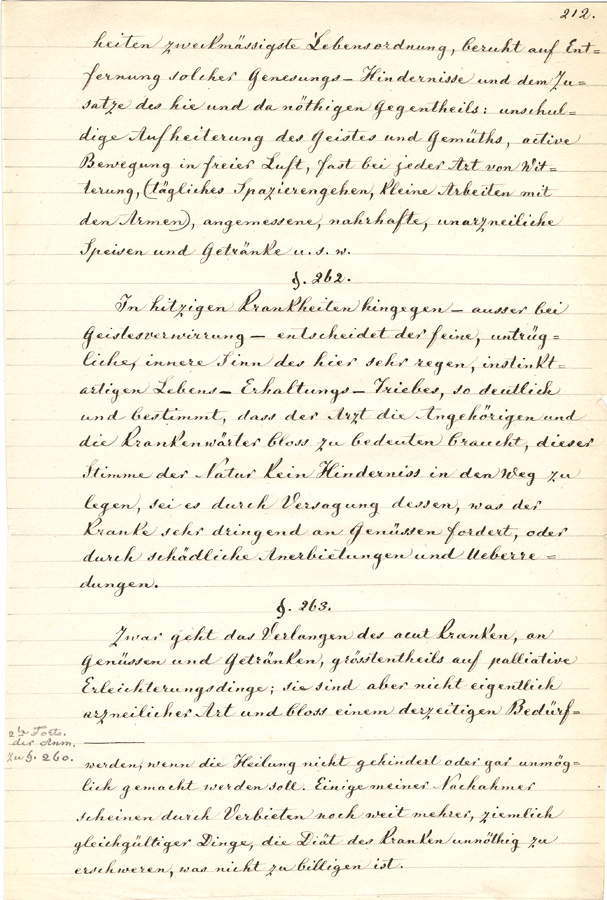 212.
heiten zweckmässigste Lebensordnung, beruht auf Ent=
fernung solcher Genesungs-Hindernisse und dem Zu=
satze des hie und da nöthigen Gegentheils: unschul=
dige Aufheiterung des Geistes und Gemüths, active
Bewegung in freier Luft, fast bei jeder Art von Wit=
terung, (tägliches Spazierengehen, kleine Arbeiten mit
den Armen), angemessene, nahrhafte, unarzneiliche
Speisen und Getränke u. s. w.
§. 262.
In hitzigen Krankheiten hingegen – ausser bei
Geistesverwirrung – entscheidet der feine, untrüg=
liche, innere Sinn des hier sehr regen, instinkt=
artigen Lebens-Erhaltungs-Triebes, so deutlich
und bestimmt, dass der Arzt die Angehörigen und
die Krankenwärter bloss zu bedeuten braucht, dieser
Stimme der Natur kein Hinderniss in den Weg zu
legen, sei es durch Versagung dessen, was der
Kranke sehr dringend an Genüssen fordert, oder
durch schädliche Anerbietungen und Ueberre=
dungen.
§. 263.
Zwar geht das Verlangen des acut Kranken, an
Genüssen und Getränken, grösstentheils auf palliative
Erleichterungsdinge; sie sind aber nicht eigentlich
arzneilicher Art und bloss einem derzeitigen Bedürf=
2te Forts.
der Anm.
zu §. 260.
werden, wenn die Heilung nicht gehindert oder gar unmög=
lich gemacht werden soll. Einige meiner Nachahmer
scheinen durch Verbieten noch weit mehrer, ziemlich
gleichgültiger Dinge, die Diät des Kranken unnöthig zu
erschweren, was nicht zu billigen ist.